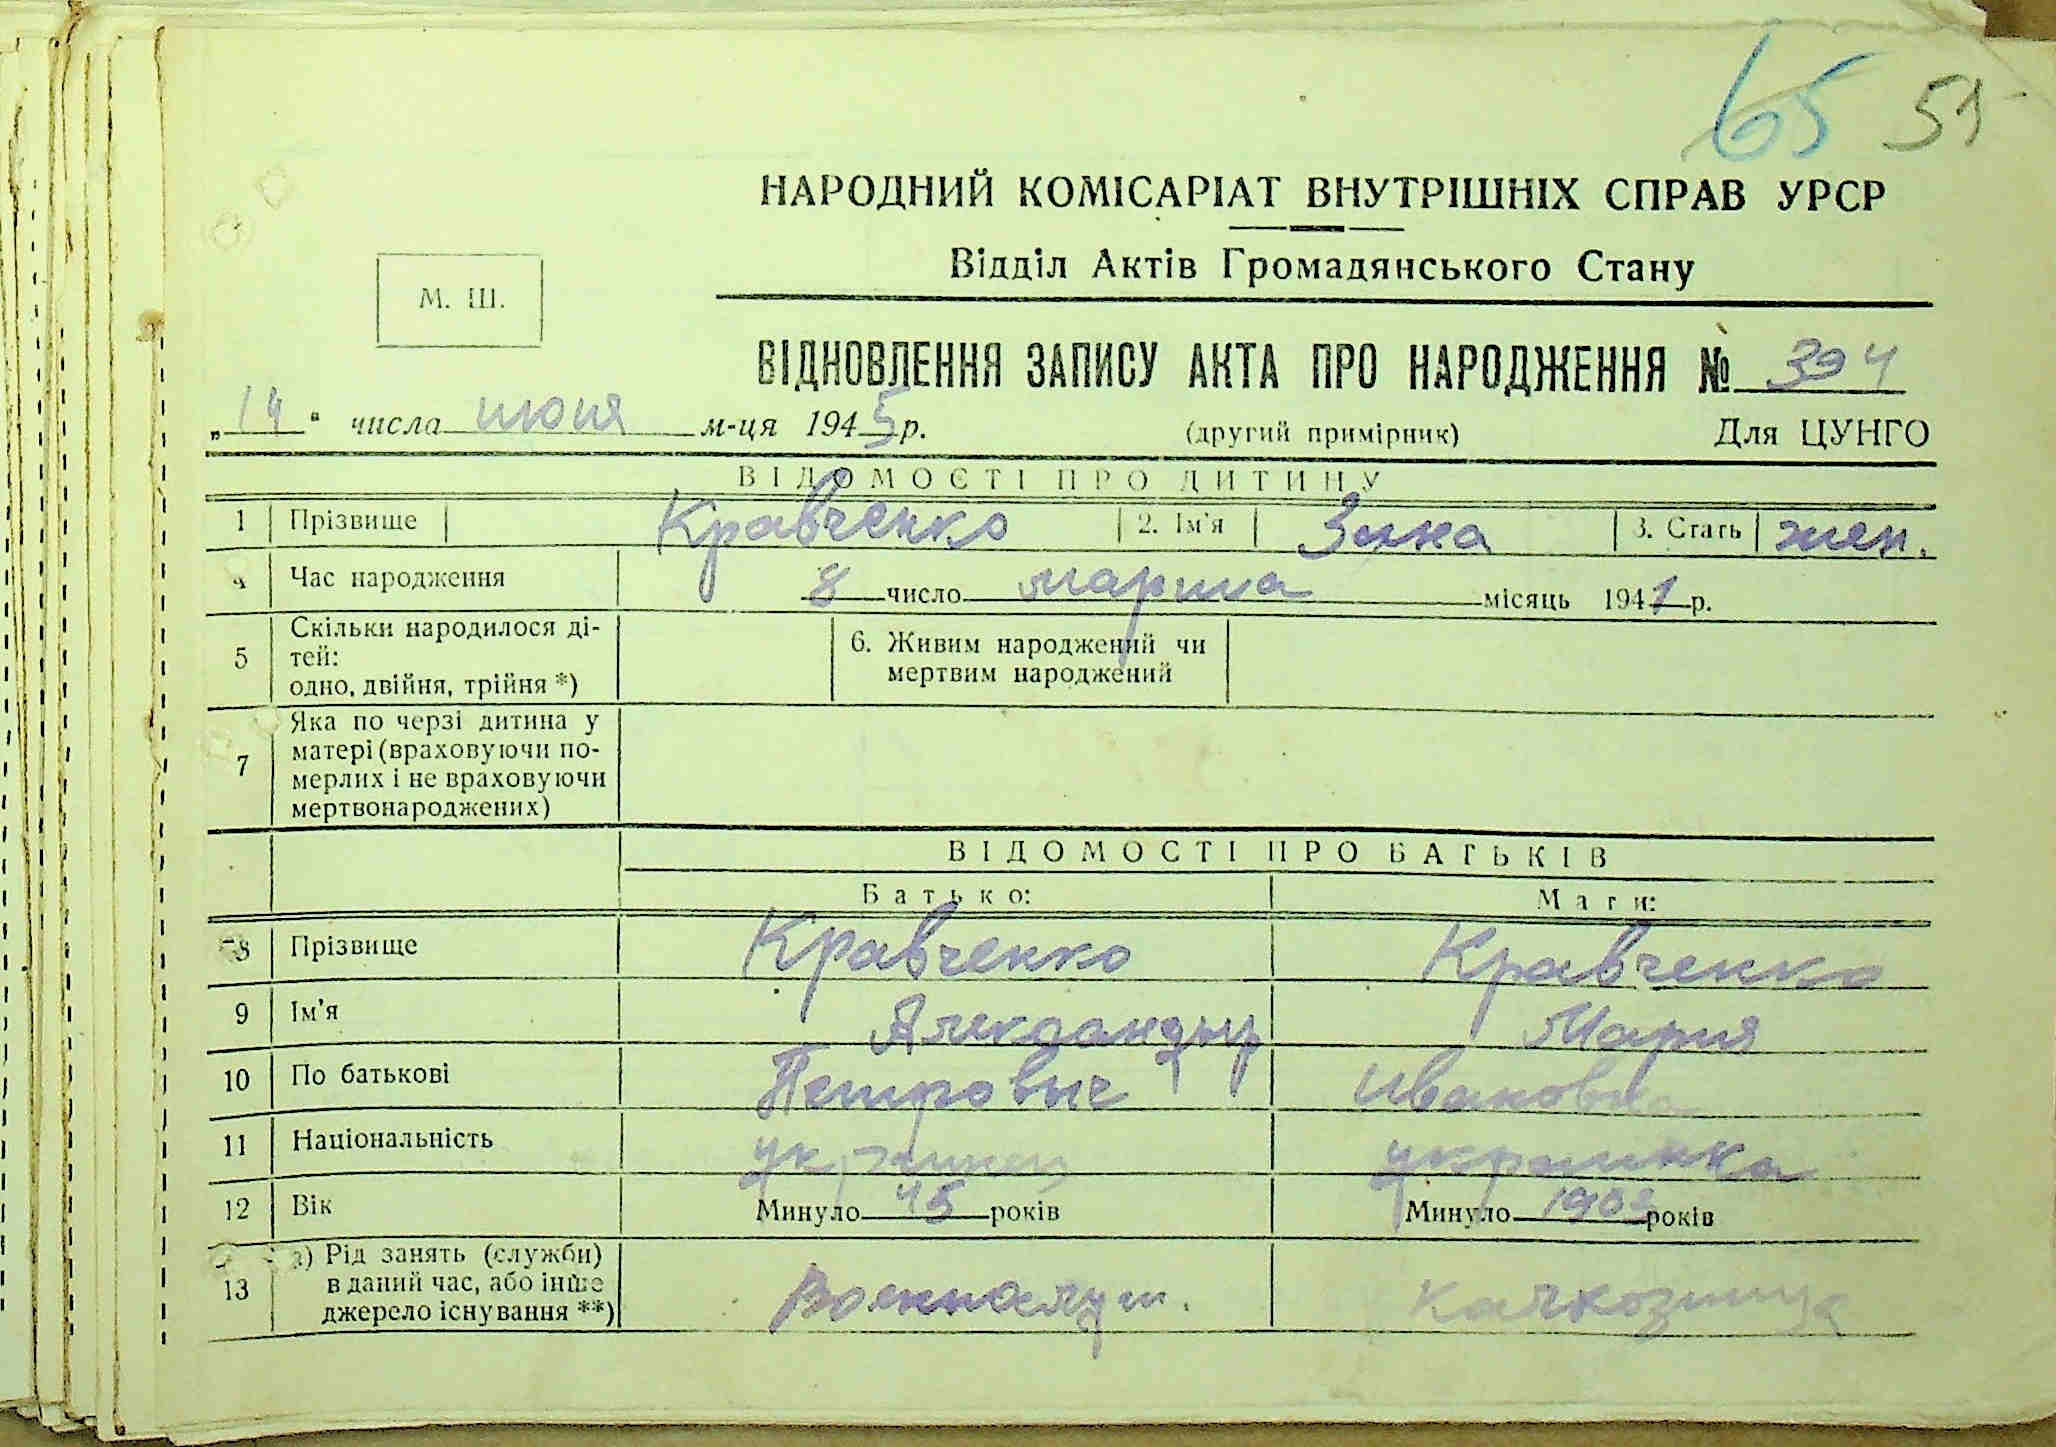 65 51
НАРОДНИЙ КОМІСАРІАТ ВНУТРІШНІХ СПРАВ УРСР
Відділ Актів Громадянського Стану
М. Ш.
ВІДНОВЛЕННЯ ЗАПИСУ АКТА ПРО НАРОДЖЕННЯ № 394
„14“ числа июня м-ця 1945 р. (другий примірник) Для ЦУНГО
ВІДОМОСТІ ПРО ДИТИНУ
1 Прізвище Кравченко 2. Ім'я Зина 3. Стать жен.
4 Час народження 8 число марта місяць 1941 р.
5 Скільки народилося ді-
тей:
одно, двійня, трійня *)
6. Живим народжений чи
мертвим народжений
7 Яка по черзі дитина у
матері (враховуючи по-
мерлих і не враховуючи
мертвонароджених)
ВІДОМОСТІ ПРО БАТЬКІВ
Батько: Мати:
8 Прізвище Кравченко Кравченко
9 Ім'я Александр Мария
10 По батькові Петрович Ивановна
11 Національність украинец украинка
12 Вік Минуло 45 років Минуло років
13 а) Рід занять (служби)
в даний час, або інше
джерело існування **)
Военнослуж. колхозница